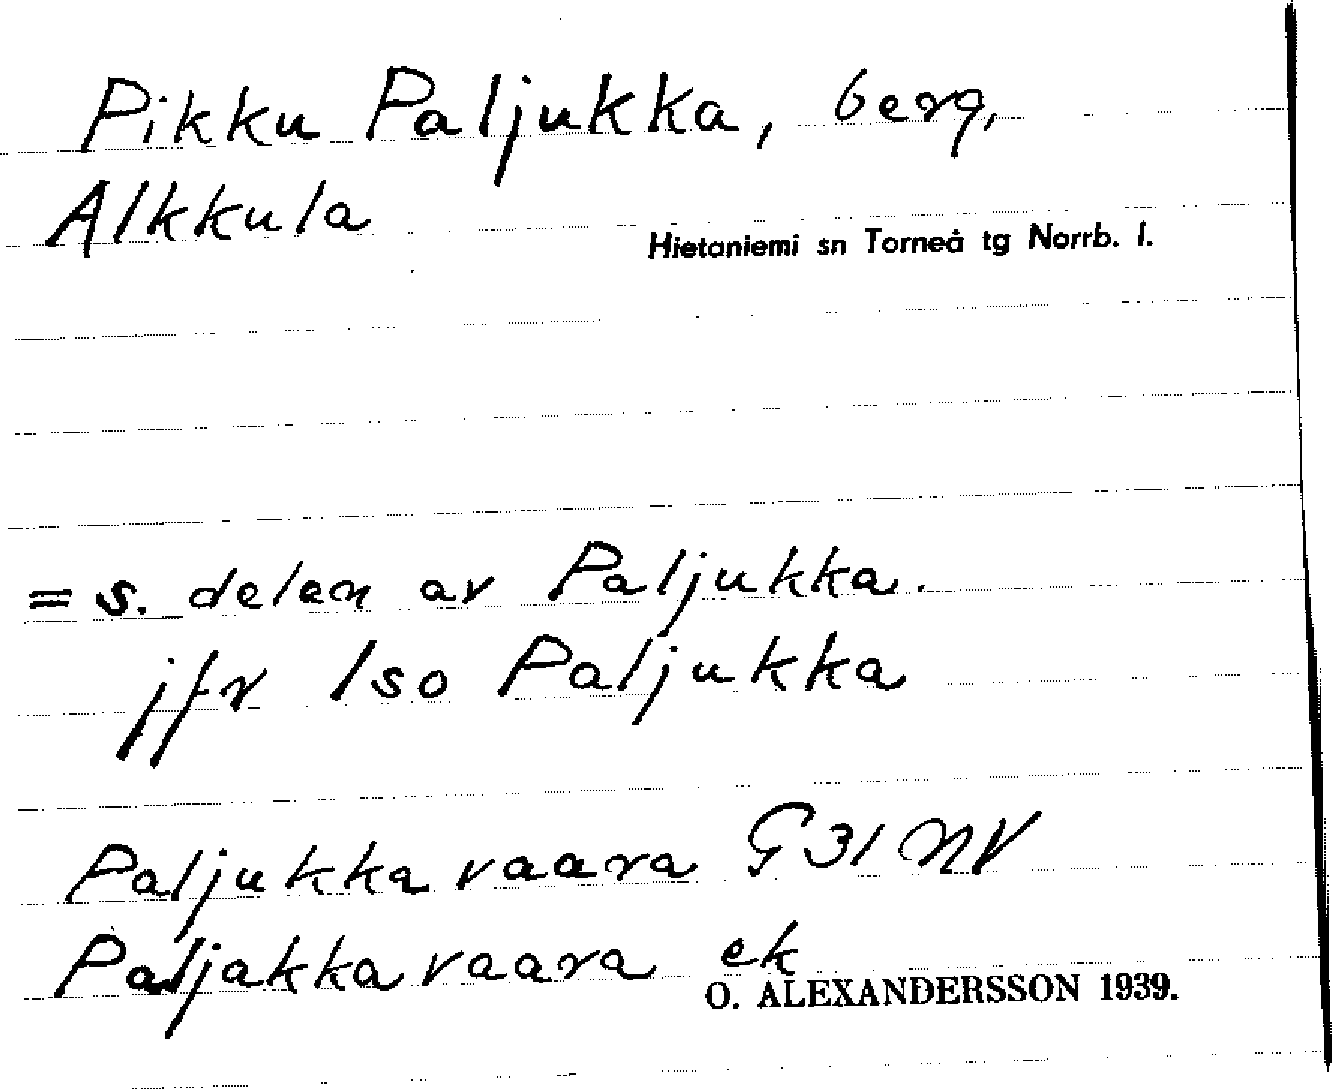 Pikku Paljukka, berg,
Alkkula
Hietaniemi sn Torneå tg Norrb. l.
= s. delen av Paljukka.
jfr Iso Paljukka
Paljukkavaara G 31 NV
Paljakkavaara ek
O. ALEXANDERSSON 1939.